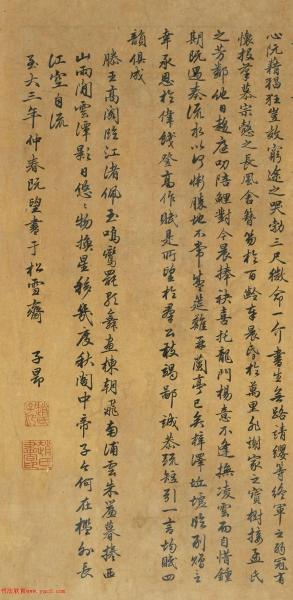 心阮藉猖狂豈效窮途之哭勃三尺微命一介書生無路請纓等終軍之弱冠有
懷投筆慕宗愨之長風舍簪笏於百齡奉晨昏於萬里非謝家之寶樹接孟氏
之芳鄰他日趨庭叨陪鯉對今晨捧袂喜托龍門楊意不逢撫凌雲而自惜鍾
期既遇奏流水以何慚勝地不常盛筵難再蘭亭已矣梓澤坵墟臨別贈言
幸承恩於偉餞登高作賦是所望於群公敢竭鄙誠恭疏短引一言均賦四
韻俱成
滕王高閣臨江渚佩玉鳴鸞罷歌舞畫棟朝飛南浦雲朱簾暮捲西
山雨閒雲潭影日悠〻物換星移幾度秋閣中帝子今何在檻外長
江空自流
至大三年仲春既望書于松雪齋 子昂